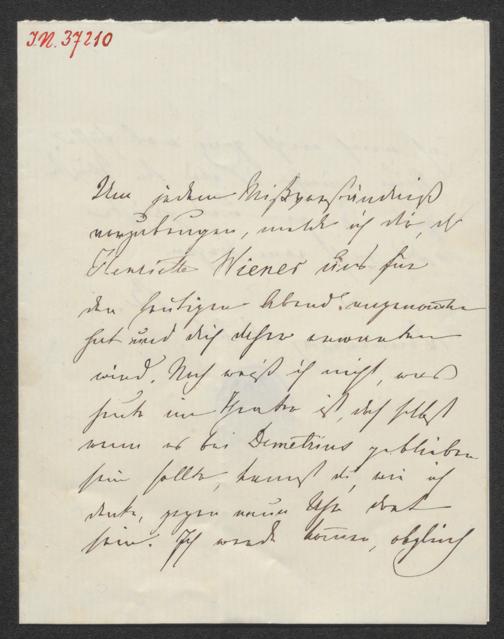 I.N. 37210
Um jedem Mißverständniß
vorzubeugen, melde ich dir, daß
Henriette Wiener uns für
den heutigen Abend angenommen
hat und dich daher erwarten
wird. Noch weiß ich nicht, was
heute im Theater ist, doch selbst
wenn es bei Demetrius geblieben
sein sollte, kannst du, wie ich
denke, gegen neun Uhr dort
sein. Ich werde kommen, obgleich